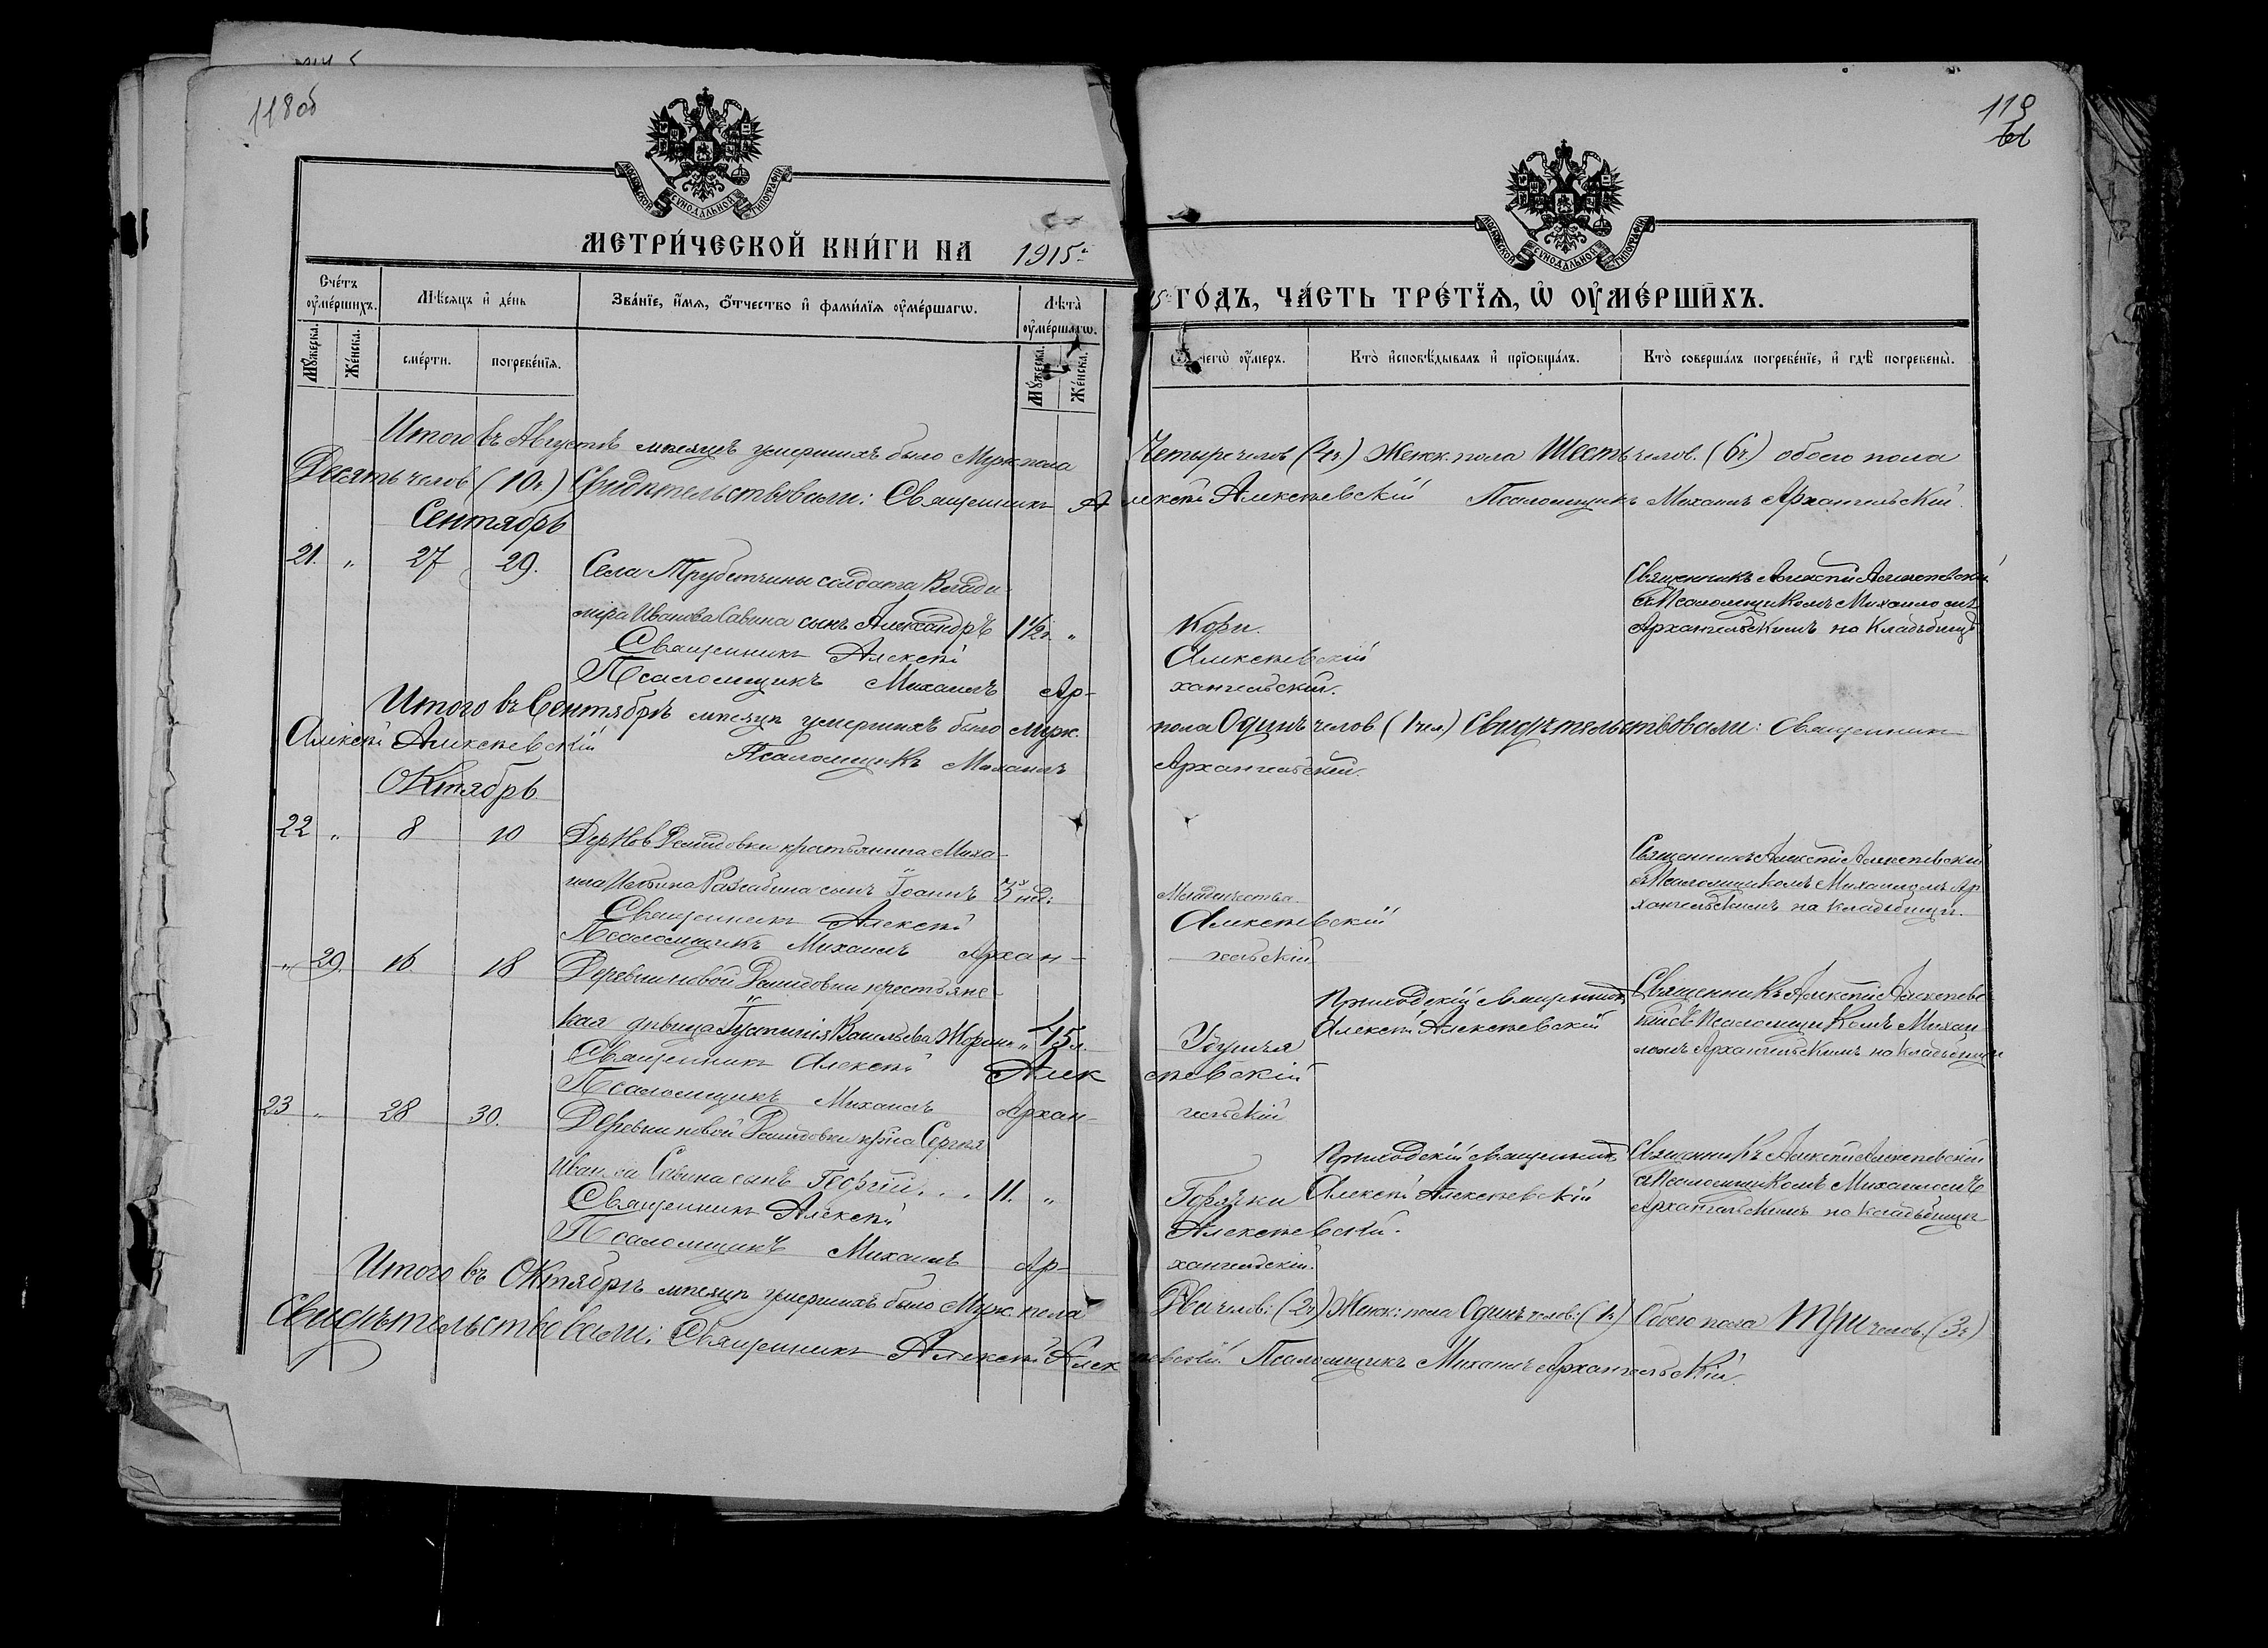 118 об
119
МОСКОВСКОЙ СУНОДАЛЬНОЙ ТИПОГРАФІИ
МОСКОВСКОЙ СУНОДАЛЬНОЙ ТИПОГРАФІИ
МЕТРИ́ЧЕСКОЙ КНИ́ГИ НА 1915 г.
ГО́ДЪ, ЧА́СТЬ ТРЕ́ТЇѦ, Ѡ҆ ОУ҆МЕ́РШИХЪ.
Сче́тъ оу҆ме́ршихъ.
Мꙋ́жеска.
Же́нска.
Мѣ́сѧцъ и҆ де́нь
сме́рти.
погребе́нїѧ.
Зва́нїе, и҆́мѧ, ѻ҆́тчество и҆ фами́лїѧ оу҆ме́ршагѡ.
Лѣ́та оу҆ме́ршагѡ.
Мꙋ́жеска.
Же́нска.
чегѡ̀ оу҆́меръ.
Кто̀ и҆сповѣ́дывалъ и҆ прїѻбща́лъ.
Кто̀ соверша́лъ погребе́нїе, и҆ гдѣ̀ погребены̀.
Итого въ Августѣ мѣсяцѣ умершихъ было Муж. пола Четыре челов (4 ч.) Женк. пола Шесть челов. (6 ч.) обоего пола
Десять челов (10 ч.) Свидѣтельствовали: Священникъ Алексѣй Алексѣевскій Псаломщикъ Михаилъ Архангельскій.
Сентябрь
21. " 27 29. Села Трубетчины солдата Влади-
міра Иванова Савина сынъ Александръ 1½ г. " Кори.
Священникъ Алексѣй Алексѣевскій
съ Псаломщикомъ Михаиломъ
Архангельскимъ на кладбищѣ
Священникъ Алексѣй Алексѣевскій
Псаломщикъ Михаилъ Архангельскій.
Итого въ Сентябрѣ мѣсяцѣ умершихъ было муж. пола Одинъ челов (1 чел.) Свидѣтельствовали: Священникъ
Алексѣй Алексѣевскій Псаломщикъ Михаилъ Архангельскій.
Октябрь.
22 " 8 10 Дер Нов Демидовки крестьянина Миха-
ила сынъ Іоаннъ 3 нед: Младенчества
Священникъ Алексѣй Алексѣевскій
съ Псаломщикомъ Михаиломъ Ар
хангельскимъ на кладбищѣ.
Священникъ Алексѣй Алексѣевскій
Псаломщикъ Михаилъ Архангельскій
" 29. 16 18 Деревни новой Демидовки крестьянс-
кая дѣвица Васильева " 45 л.
Приходскій священникъ
Алексѣй Алексѣевскій
Священникъ Алексѣй Алексѣевс
кій съ Псаломщикомъ Михаи
ломъ Архангельскимъ на кладбищѣ
Священникъ Алексѣй Алексѣевскій
Псаломщикъ Михаилъ Архангельскій
23 " 28 30. Деревни новой Демидовки кр-на Сергѣя
Иван ва Савина сынъ Георгій . . . 11. " Горячки
Приходскій священникъ
Алексѣй Алексѣевскій
Священникъ Алексѣй Алексѣевскій
съ Псаломщикомъ Михаиломъ
Архангельскимъ на кладбищѣ
Священникъ Алексѣй Алексѣевскій.
Псаломщикъ Михаилъ Архангельскій.
Итого въ Октябрѣ мѣсяцѣ умершихъ было Муж. пола Два челов: (2 ч) Женк: пола Одинъ челов: (1 ч) Обоего пола Три челов. (3 ч)
Свидѣтельствовали: Священникъ Алексѣй Алексѣевскій Псаломщикъ Михаилъ Архангельскій.